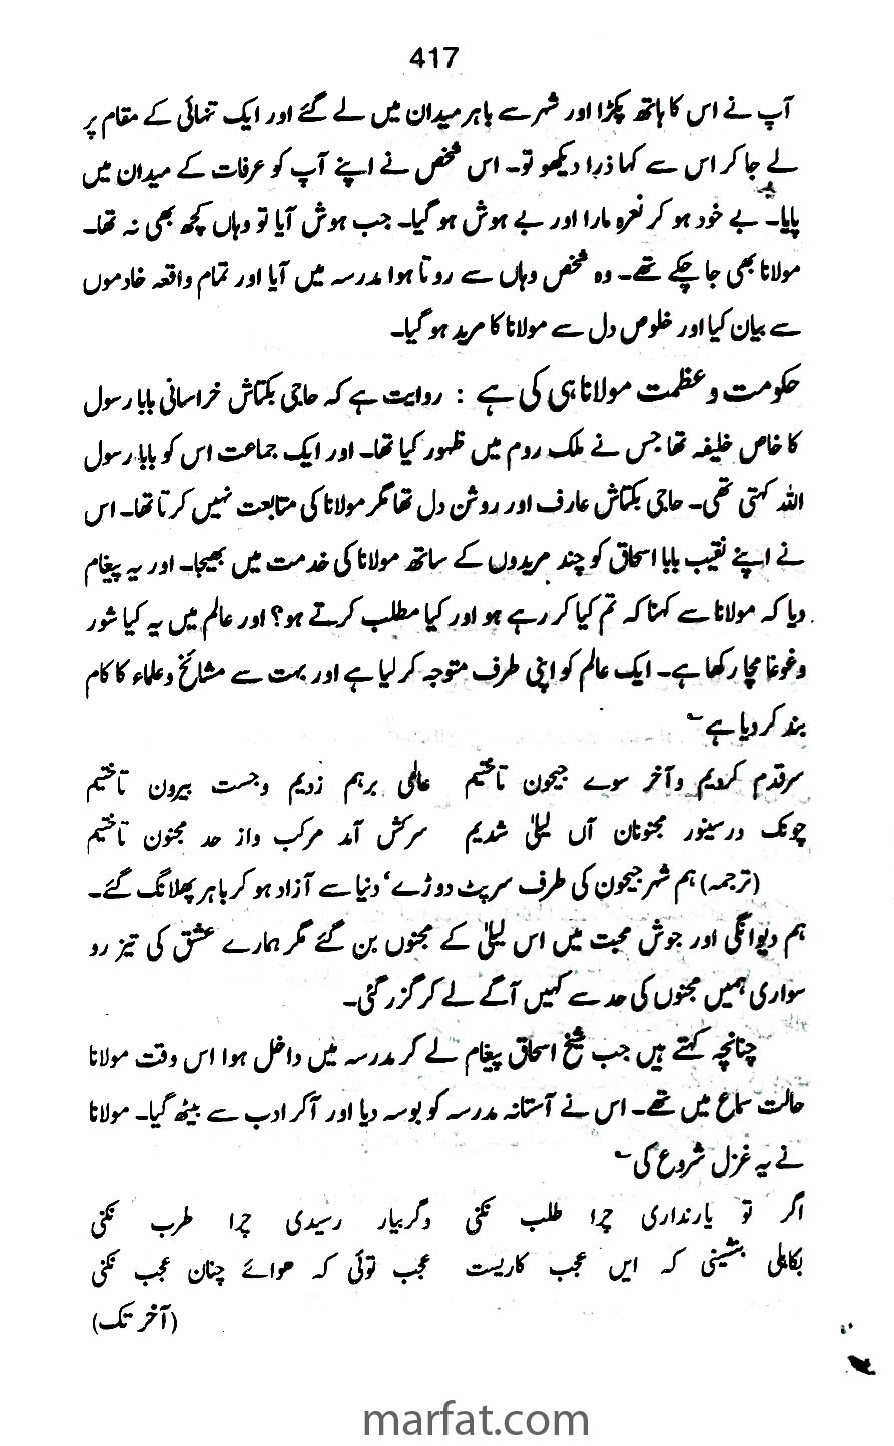 417
آپ نے اس کا ہاتھ پکڑا اور شہر سے باہر میدان میں لے گئے اور ایک تنہائی کے مقام پر
لے جا کر اس سے کہا ذرا دیکھو تو۔ اس شخص نے اپنے آپ کو عرفات کے میدان میں
پایا۔ بے خود ہو کر نعرہ مارا اور بے ہوش ہو گیا۔ جب ہوش آیا تو وہاں کچھ بھی نہ تھا۔
مولانا بھی جا چکے تھے۔ وہ شخص وہاں سے روتا ہوا مدرسہ میں آیا اور تمام واقعہ خادموں
سے بیان کیا اور خلوص دل سے مولانا کا مرید ہو گیا۔
حکومت و عظمت مولانا ہی کی ہے : روایت ہے کہ حاجی بکتاش خراسانی بابا رسول
کا خاص خلیفہ تھا جس نے ملک روم میں ظہور کیا تھا۔ اور ایک جماعت اس کو بابا رسول
اللہ کہتی تھی۔ حاجی بکتاش عارف اور روشن دل تھا مگر مولانا کی متابعت نہیں کرتا تھا۔ اس
نے اپنے نقیب بابا اسحاق کو چند مریدوں کے ساتھ مولانا کی خدمت میں بھیجا۔ اور یہ پیغام
دیا کہ مولانا سے کہنا کہ تم کیا کر رہے ہو اور کیا مطلب کرتے ہو؟ اور عالم میں یہ کیا شور
وغوغا مچا رکھا ہے۔ ایک عالم کو اپنی طرف متوجہ کر لیا ہے اور بہت سے مشائخ و علماء کا کام
بند کر دیا ہے ؎
سرقدم کردیم و آخر سوے جیحون تاختیم عالمی برہم زدیم وجست بیرون تاختیم
چونک درسینور مجنونان آں لیلیٰ شدیم سرکش آمد مرکب واز حد مجنون تاختیم
(ترجمہ) ہم شہر جیحون کی طرف سرپٹ دوڑے، دنیا سے آزاد ہو کر باہر پھلانگ گئے۔
ہم دیوانگی اور جوش محبت میں اس لیلیٰ کے مجنوں بن گئے مگر ہمارے عشق کی تیز رو
سواری ہمیں مجنوں کی حد سے کہیں آگے لے کر گزر گئی۔
چنانچہ کہتے ہیں جب شیخ اسحاق پیغام لے کر مدرسہ میں داخل ہوا اس وقت مولانا
حالت سماع میں تھے۔ اس نے آستانہ مدرسہ کو بوسہ دیا اور آکر ادب سے بیٹھ گیا۔ مولانا
نے یہ غزل شروع کی ؎
اگر تو یارنداری چرا طلب نکنی وگربیار رسیدی چرا طرب نکنی
بکاہلی بنشینی کہ ایں عجب کاریست عجب توئی کہ ہوائے چنان عجب نکنی
(آخر تک)
marfat.com